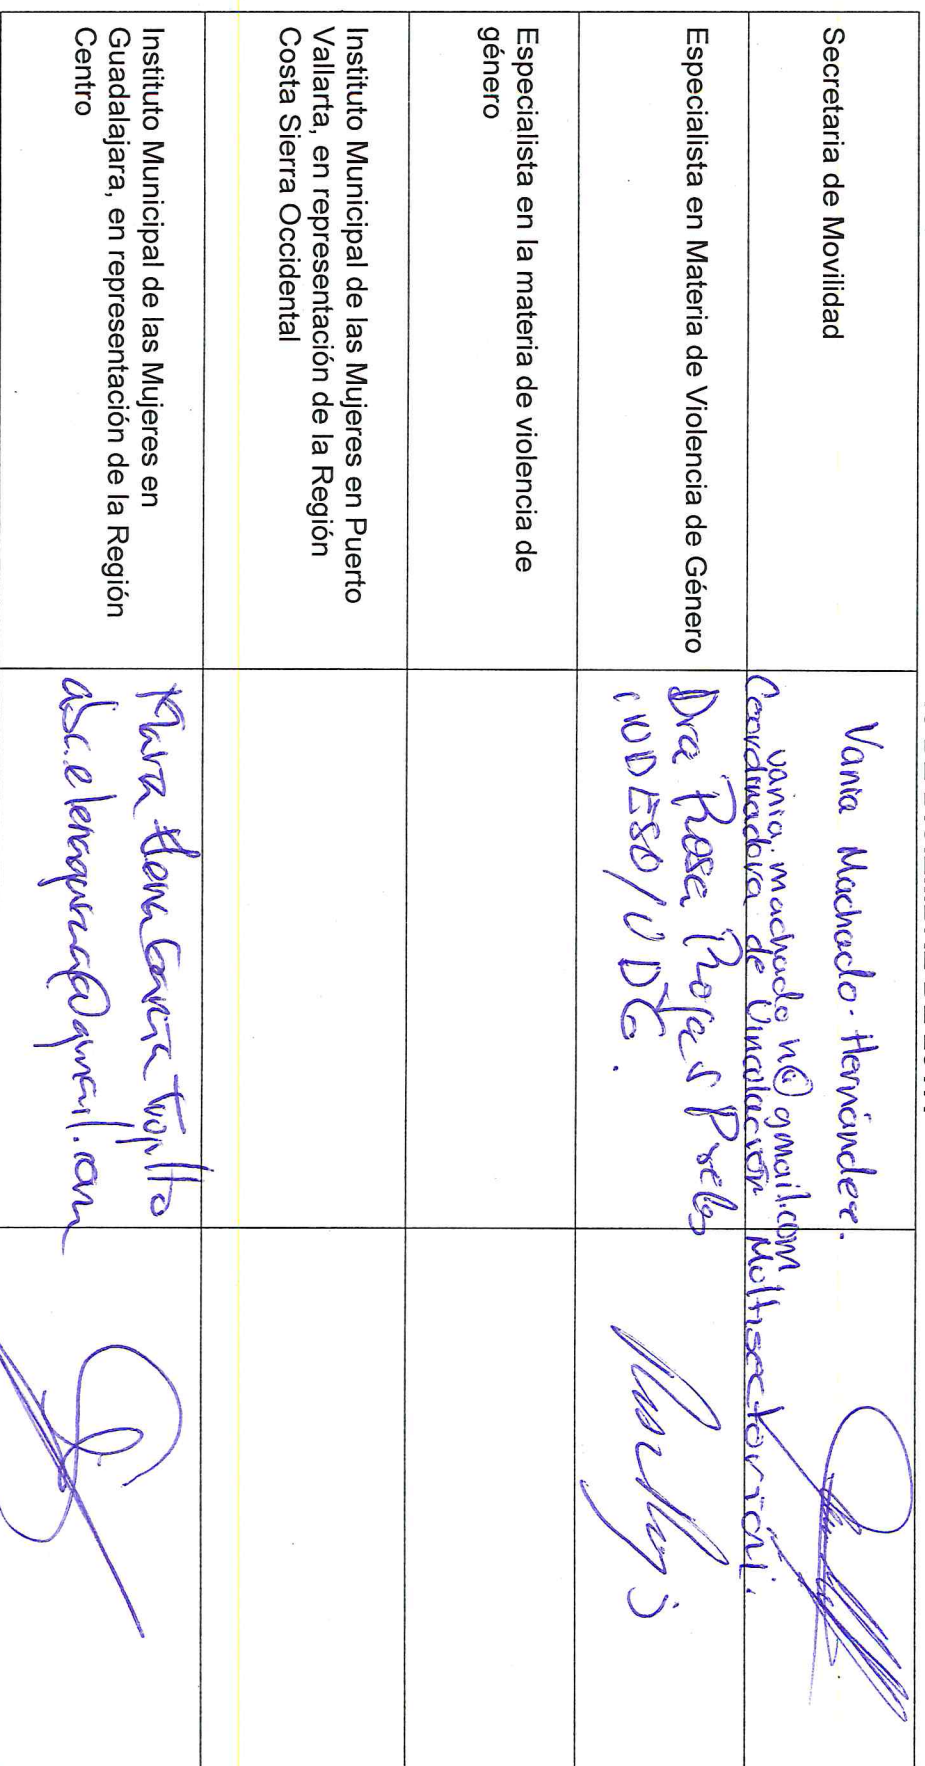 Secretaria de Movilidad
Vania Machado Hernández.
vania.machado h@gmail.com
Coordinadora de Vinculación Multisectorial.
Especialista en Materia de Violencia de Género
Dra Rosa Rojas Paredes
CIUDESO/UDG.
Especialista en la materia de violencia de
género
Instituto Municipal de las Mujeres en Puerto
Vallarta, en representación de la Región
Costa Sierra Occidental
Instituto Municipal de las Mujeres en
Guadalajara, en representación de la Región
Centro
María Elena García Trujillo